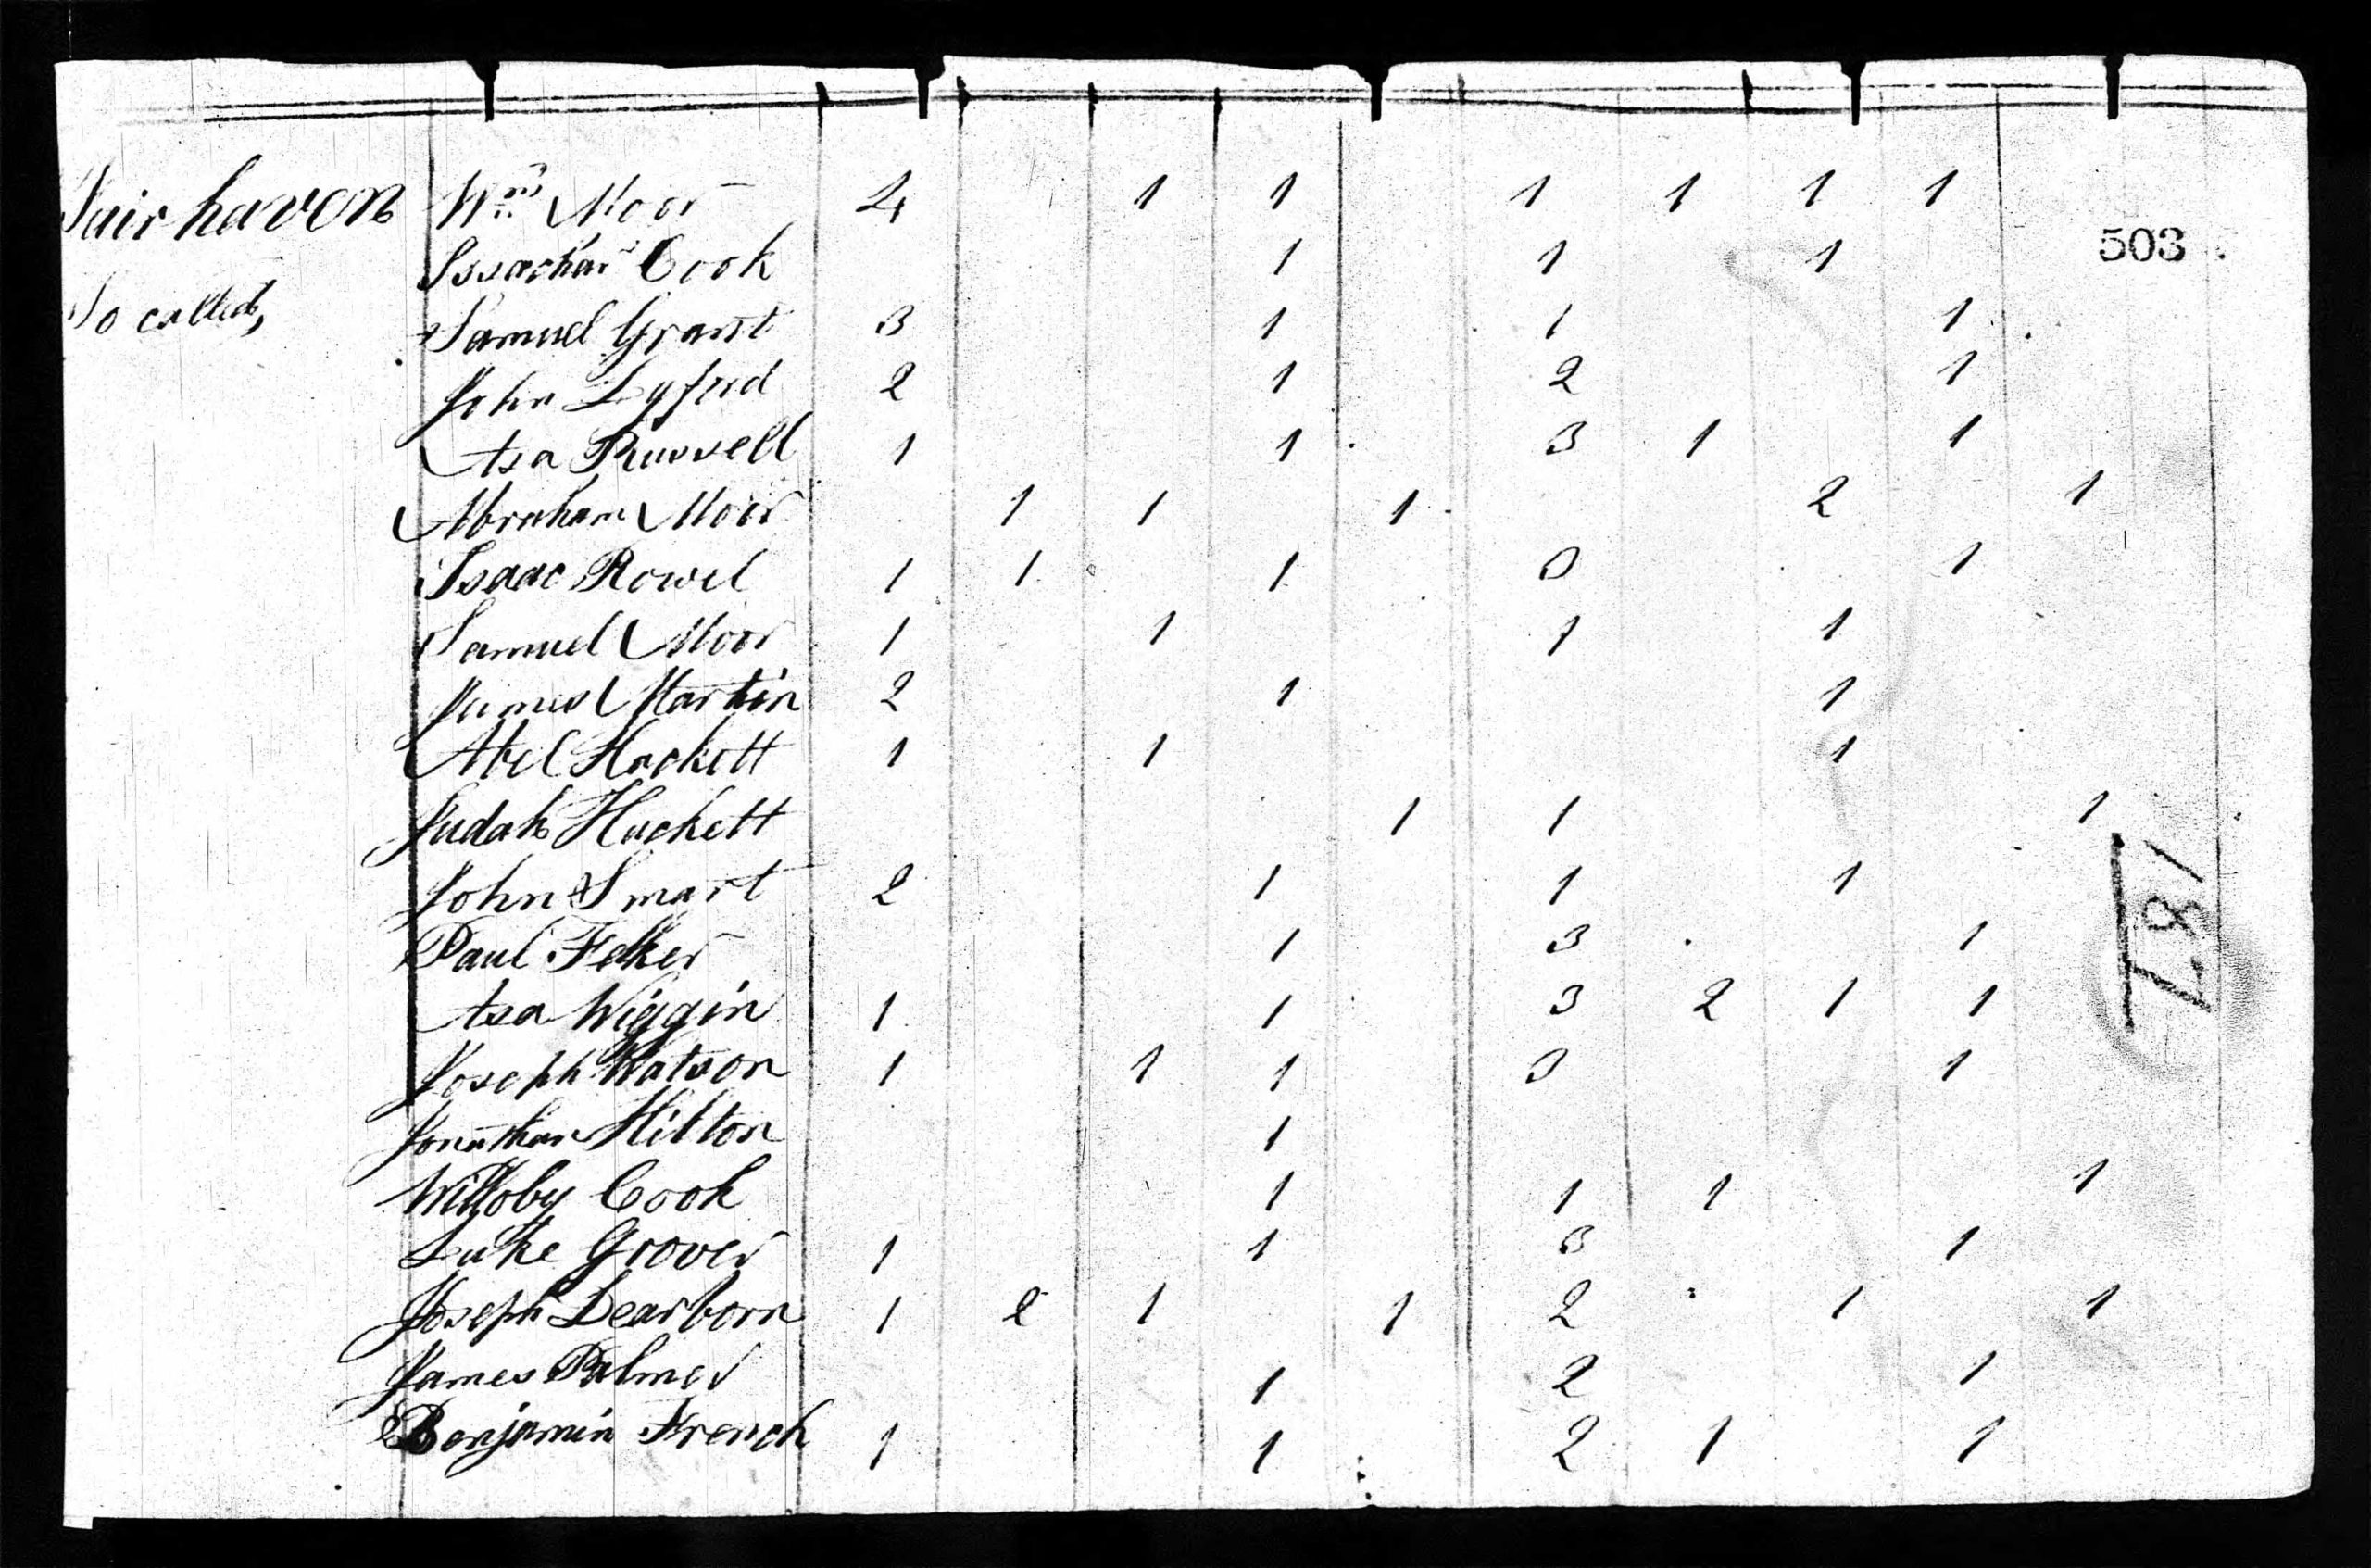 Fairhaven Wm Moor 4 1 1 1 1 1 1
Issachar Cook 1 1 1 503
So called, Samuel Grant 3 1 1 1
John Lyford 2 1 2 1
Asa Russell 1 1 3 1 1
Abraham Moor 1 1 1 2 1
Isaac Rowel 1 1 1 0 1
Samuel Moor 1 1 1 1
James Martin 2 1 1
Abel Hackett 1 1 1
Judah Hackett 1 1 1
John Smart 2 1 1 1
Paul Felker 1 3 1
Asa Wiggin 1 1 3 2 1 1
Joseph Watson 1 1 1 0 1
Jonathan Hilton 1
Willoby Cook 1 1 1 1
Luke Grover 1 1 3 1
Joseph Dearborn 1 2 1 1 2 1 1
James Palmer 1 2 1
Benjamin French 1 1 2 1 1
187